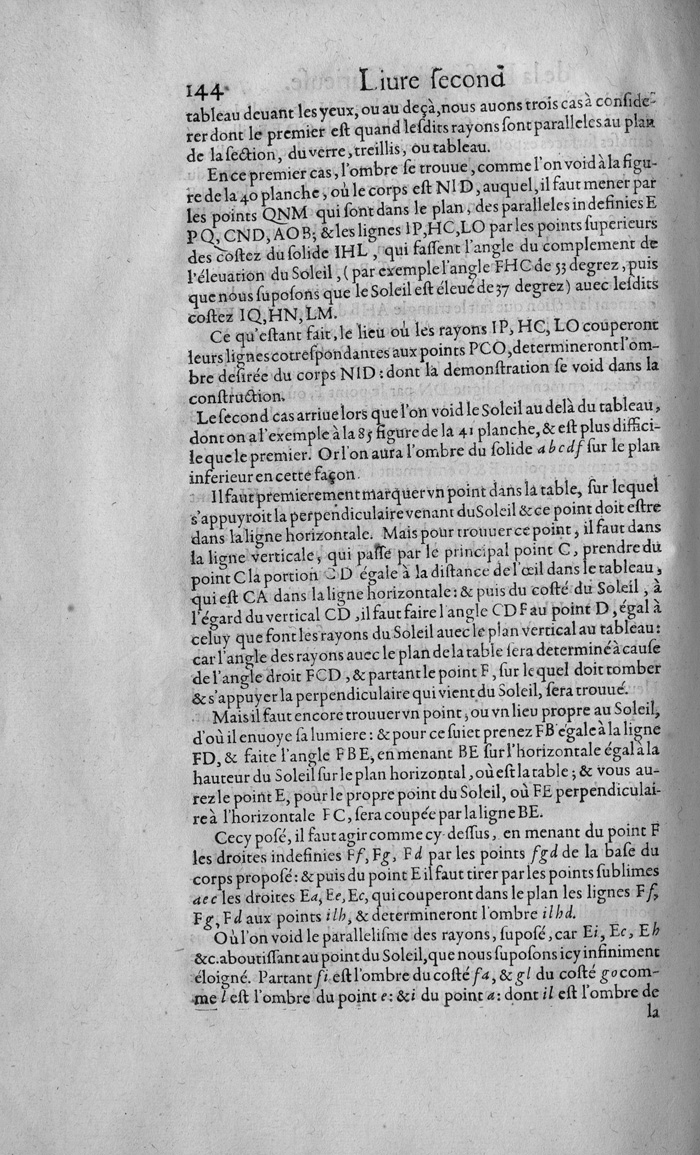 144 Liure ſecond
tableau deuant les yeux, ou au deçà, nous auons trois cas à conſide-
rer dont le premier eſt quand leſdits rayons ſont paralleles au plan
de la ſection, du verre, treillis, ou tableau.
En ce premier cas, l'ombre ſe trouue, comme l'on void à la figu-
re de la 40 planche, où le corps eſt NID, auquel, il faut mener par
les points QNM qui ſont dans le plan, des paralleles indefinies E
PQ, CND, AOB; & les lignes IP, HC, LO par les points ſuperieurs
des coſtez du ſolide IHL, qui faſſent l'angle du complement de
l'éleuation du Soleil, (par exemple l'angle FHC de 53 degrez, puis
que nous ſupoſons que le Soleil eſt éleué de 37 degrez) auec leſdits
coſtez IQ, HN, LM.
Ce qu'eſtant fait, le lieu où les rayons IP, HC, LO couperont
leurs lignes cotreſpondantes aux points PCO, determineront l'om-
bre deſirée du corps NID: dont la demonſtration ſe void dans la
conſtruction.
Le ſecond cas arriue lors que l'on void le Soleil au delà du tableau,
dont on a l'exemple à la 85 figure de la 41 planche, & eſt plus diffici-
le que le premier. Or l'on aura l'ombre du ſolide abcdf ſur le plan
inferieur en cette façon.
Il faut premierement marquer vn point dans la table, ſur lequel
s'appuyroit la perpendiculaire venant du Soleil & ce point doit eſtre
dans la ligne horizontale. Mais pour trouuer ce point, il faut dans
la ligne verticale, qui paſſe par le principal point C, prendre du
point C la portion CD égale à la diſtance de l'œil dans le tableau,
qui eſt CA dans la ligne horizontale: & puis du coſté du Soleil, à
l'égard du vertical CD, il faut faire l'angle CDF au point D, égal à
celuy que font les rayons du Soleil auec le plan vertical au tableau:
car l'angle des rayons auec le plan de la table ſera determiné à cauſe
de l'angle droit FCD, & partant le point F, ſur lequel doit tomber
& s'appuyer la perpendiculaire qui vient du Soleil, ſera trouué.
Mais il faut encore trouuer vn point, ou vn lieu propre au Soleil,
d'où il enuoye ſa lumiere: & pour ce ſuiet prenez FB égale à la ligne
FD, & faite l'angle FBE, en menant BE ſur l'horizontale égal à la
hauteur du Soleil ſur le plan horizontal, où eſt la table; & vous au-
rez le point E, pour le propre point du Soleil, où FE perpendiculai-
re à l'horizontale FC, ſera coupée par la ligne BE.
Cecy poſé, il faut agir comme cy deſſus, en menant du point F
les droites indefinies Ff, Fg, Fd par les points fgd de la baſe du
corps propoſé: & puis du point E il faut tirer par les points ſublimes
aec les droites Ea, Ee, Ec, qui couperont dans le plan les lignes Ff,
Fg, Fd aux points ilh, & determineront l'ombre ilhd.
Où l'on void le paralleliſme des rayons, ſupoſé, car Ei, Ec, Eh
&c. aboutiſſant au point du Soleil, que nous ſupoſons icy infiniment
éloigné. Partant fi eſt l'ombre du coſté fa, & gl du coſté go com-
me l eſt l'ombre du point e: & i du point a: dont il eſt l'ombre de
la